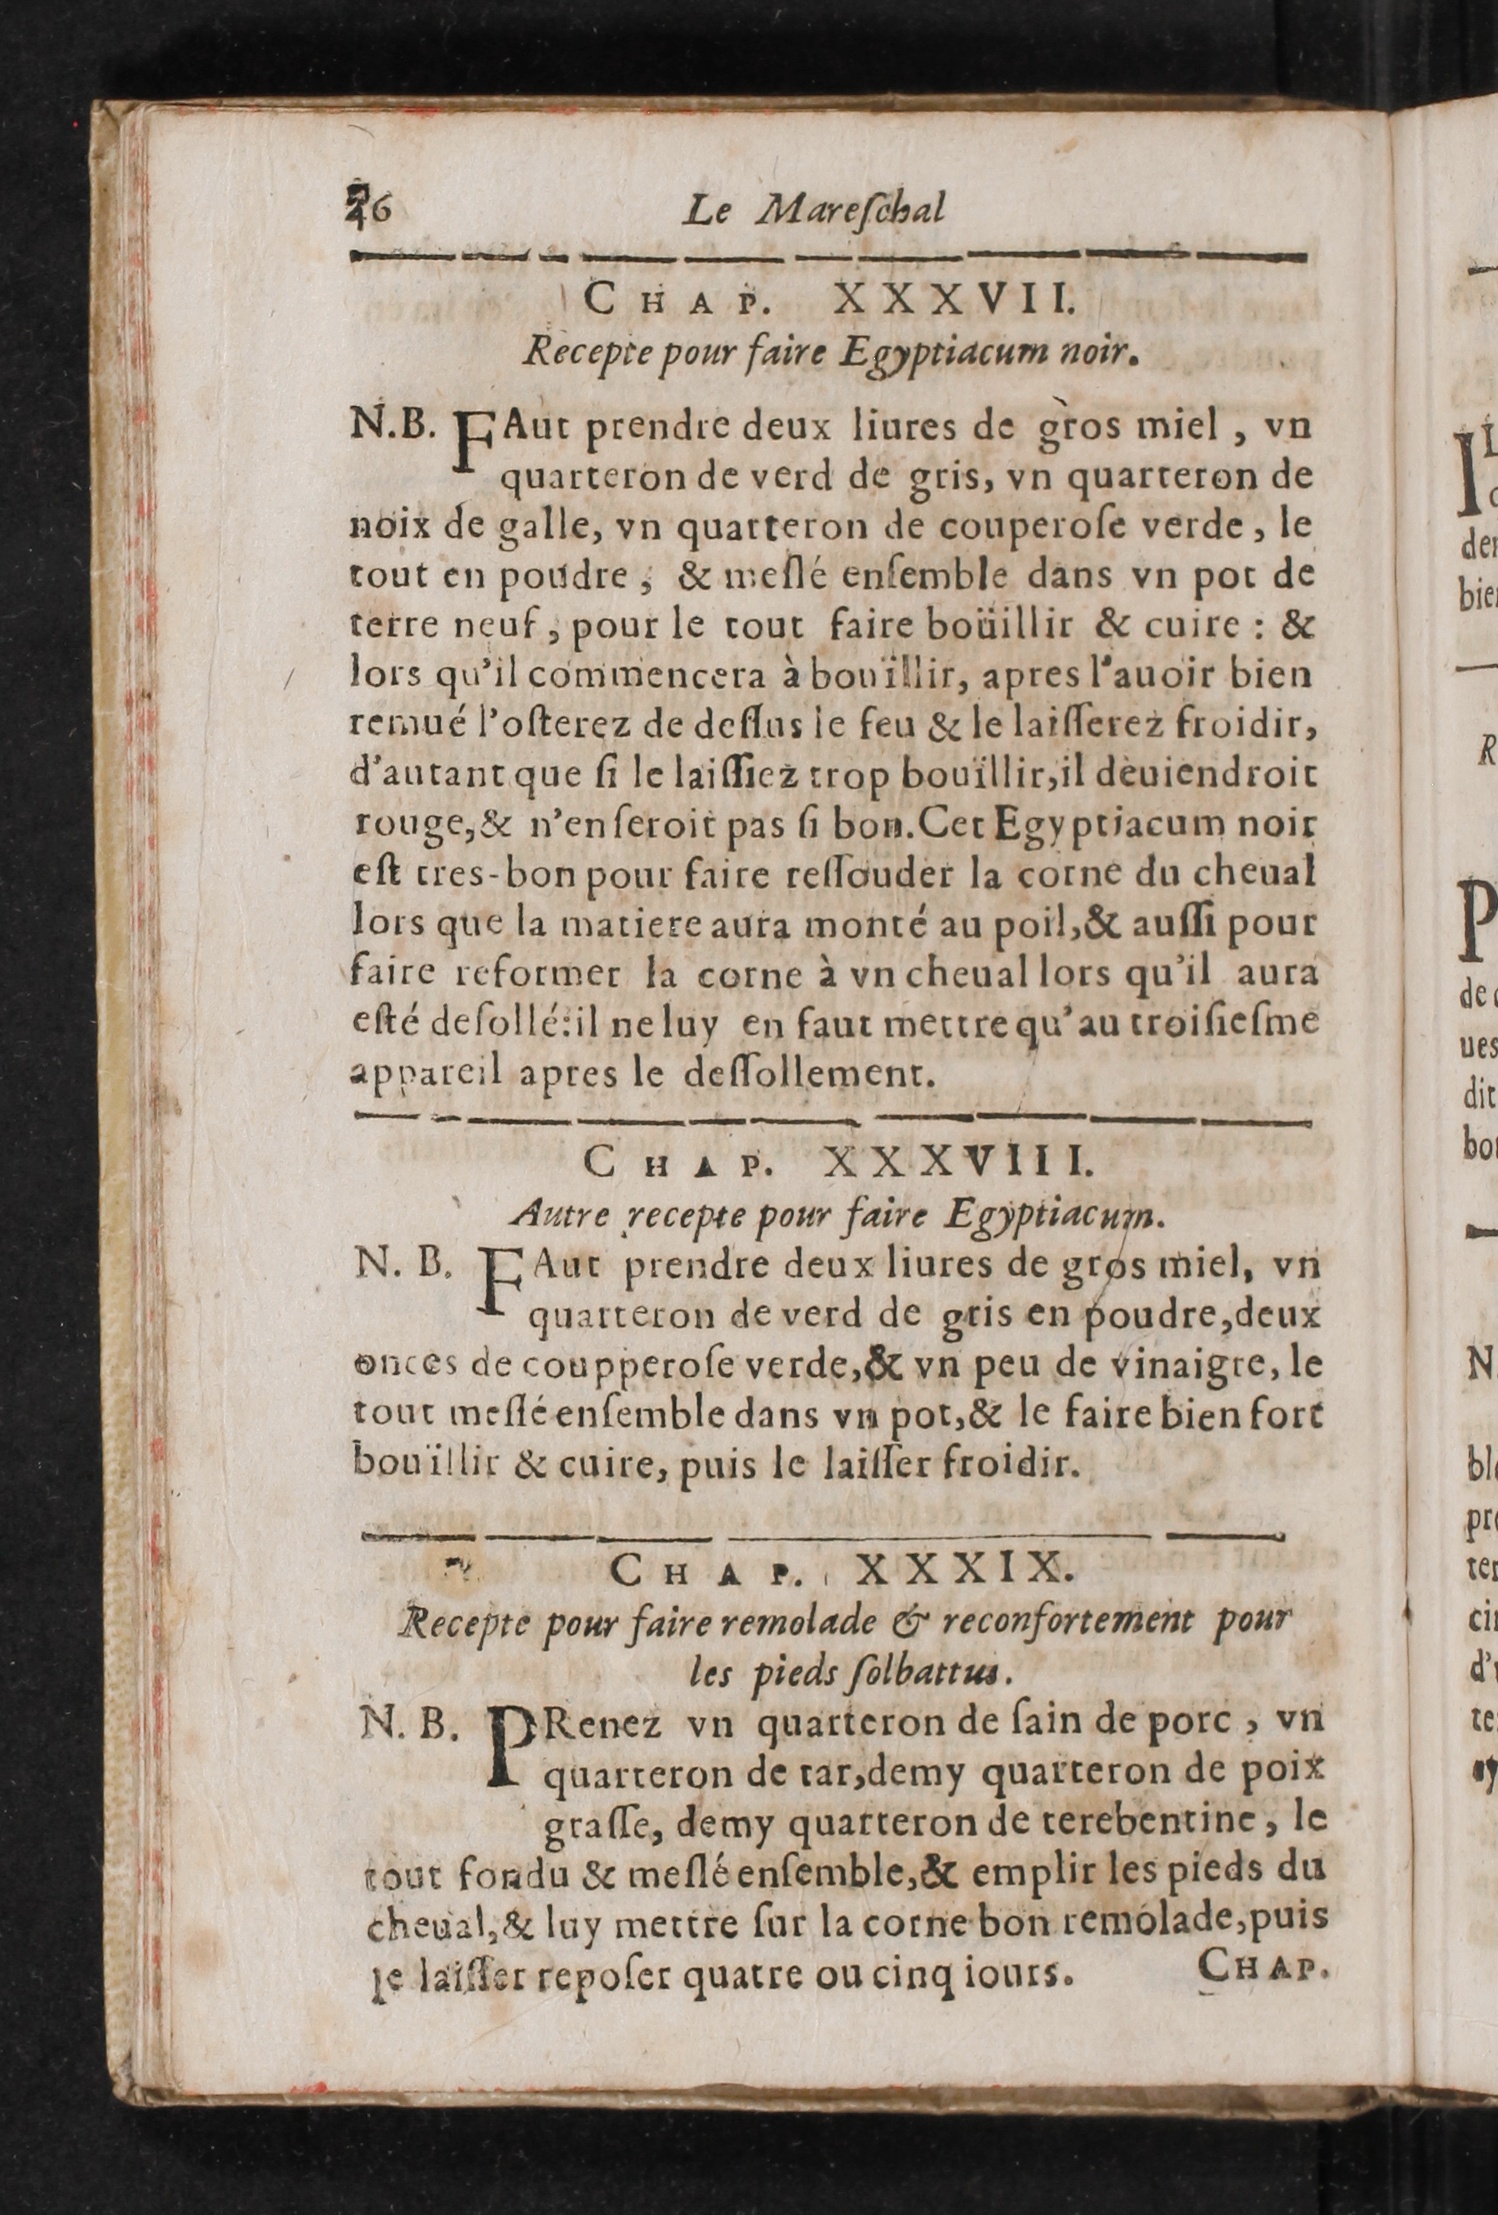 26 Le Mareſchal
CHAP. XXXVII.
Recepte pour faire Egyptiacum noir.
N.B. FAut prendre deux liures de gros miel, vn
quarteron de verd de gris, vn quarteron de
noix de galle, vn quarteron de couperoſe verde, le
tout en poudre, & meſlé enſemble dans vn pot de
terre neuf, pour le tout faire boüillir & cuire : &
lors qu'il commencera à bouïllir, apres l'auoir bien
remué l'oſterez de deſſus le feu & le laiſſerez froidir,
d'autant que ſi le laiſſiez trop bouïllir, il deuiendroit
rouge, & n'en ſeroit pas ſi bon. Cet Egyptiacum noir
eſt tres-bon pour faire reſſouder la corne du cheual
lors que la matiere aura monté au poil, & auſſi pour
faire reformer la corne à vn cheual lors qu'il aura
eſté deſollé: il ne luy en faut mettre qu'au troiſieſme
appareil apres le deſſollement.
CHAP. XXXVIII.
Autre recepte pour faire Egyptiacum.
N. B. FAut prendre deux liures de gros miel, vn
quarteron de verd de gris en poudre, deux
onces de coupperoſe verde, & vn peu de vinaigre, le
tout meſlé enſemble dans vn pot, & le faire bien fort
bouïllir & cuire, puis le laiſſer froidir.
CHAP. XXXIX.
Recepte pour faire remolade & reconfortement pour
les pieds ſolbattus.
N. B. PRenez vn quarteron de ſain de porc, vn
quarteron de tar, demy quarteron de poix
graſſe, demy quarteron de terebentine, le
tout fondu & meſlé enſemble, & emplir les pieds du
cheual, & luy mettre ſur la corne bon remolade, puis
le laiſſer repoſer quatre ou cinq iours. CHAP.